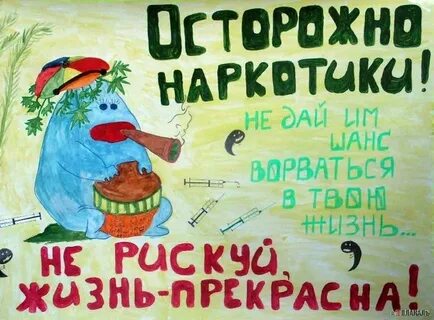 ОСТОРОЖНО
НАРКОТИКИ!
НЕ ДАЙ ИМ
ШАНС
ВОРВАТЬСЯ
В ТВОЮ
ЖИЗНЬ...
НЕ РИСКУЙ,
ЖИЗНЬ-ПРЕКРАСНА!